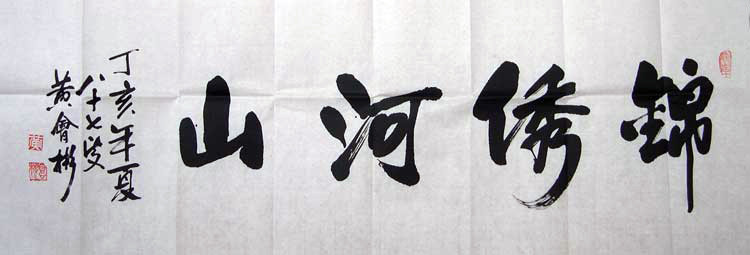 錦绣河山
丁亥年夏
八十七叟
黄會彬